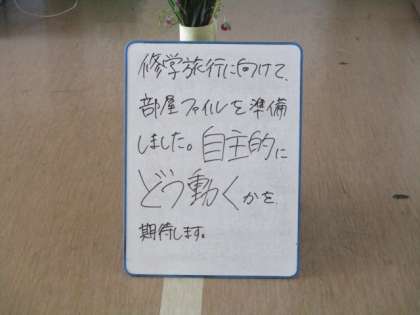 修学旅行に向けて、
部屋ファイルを準備
しました。自主的に
どう動くかを
期待します。